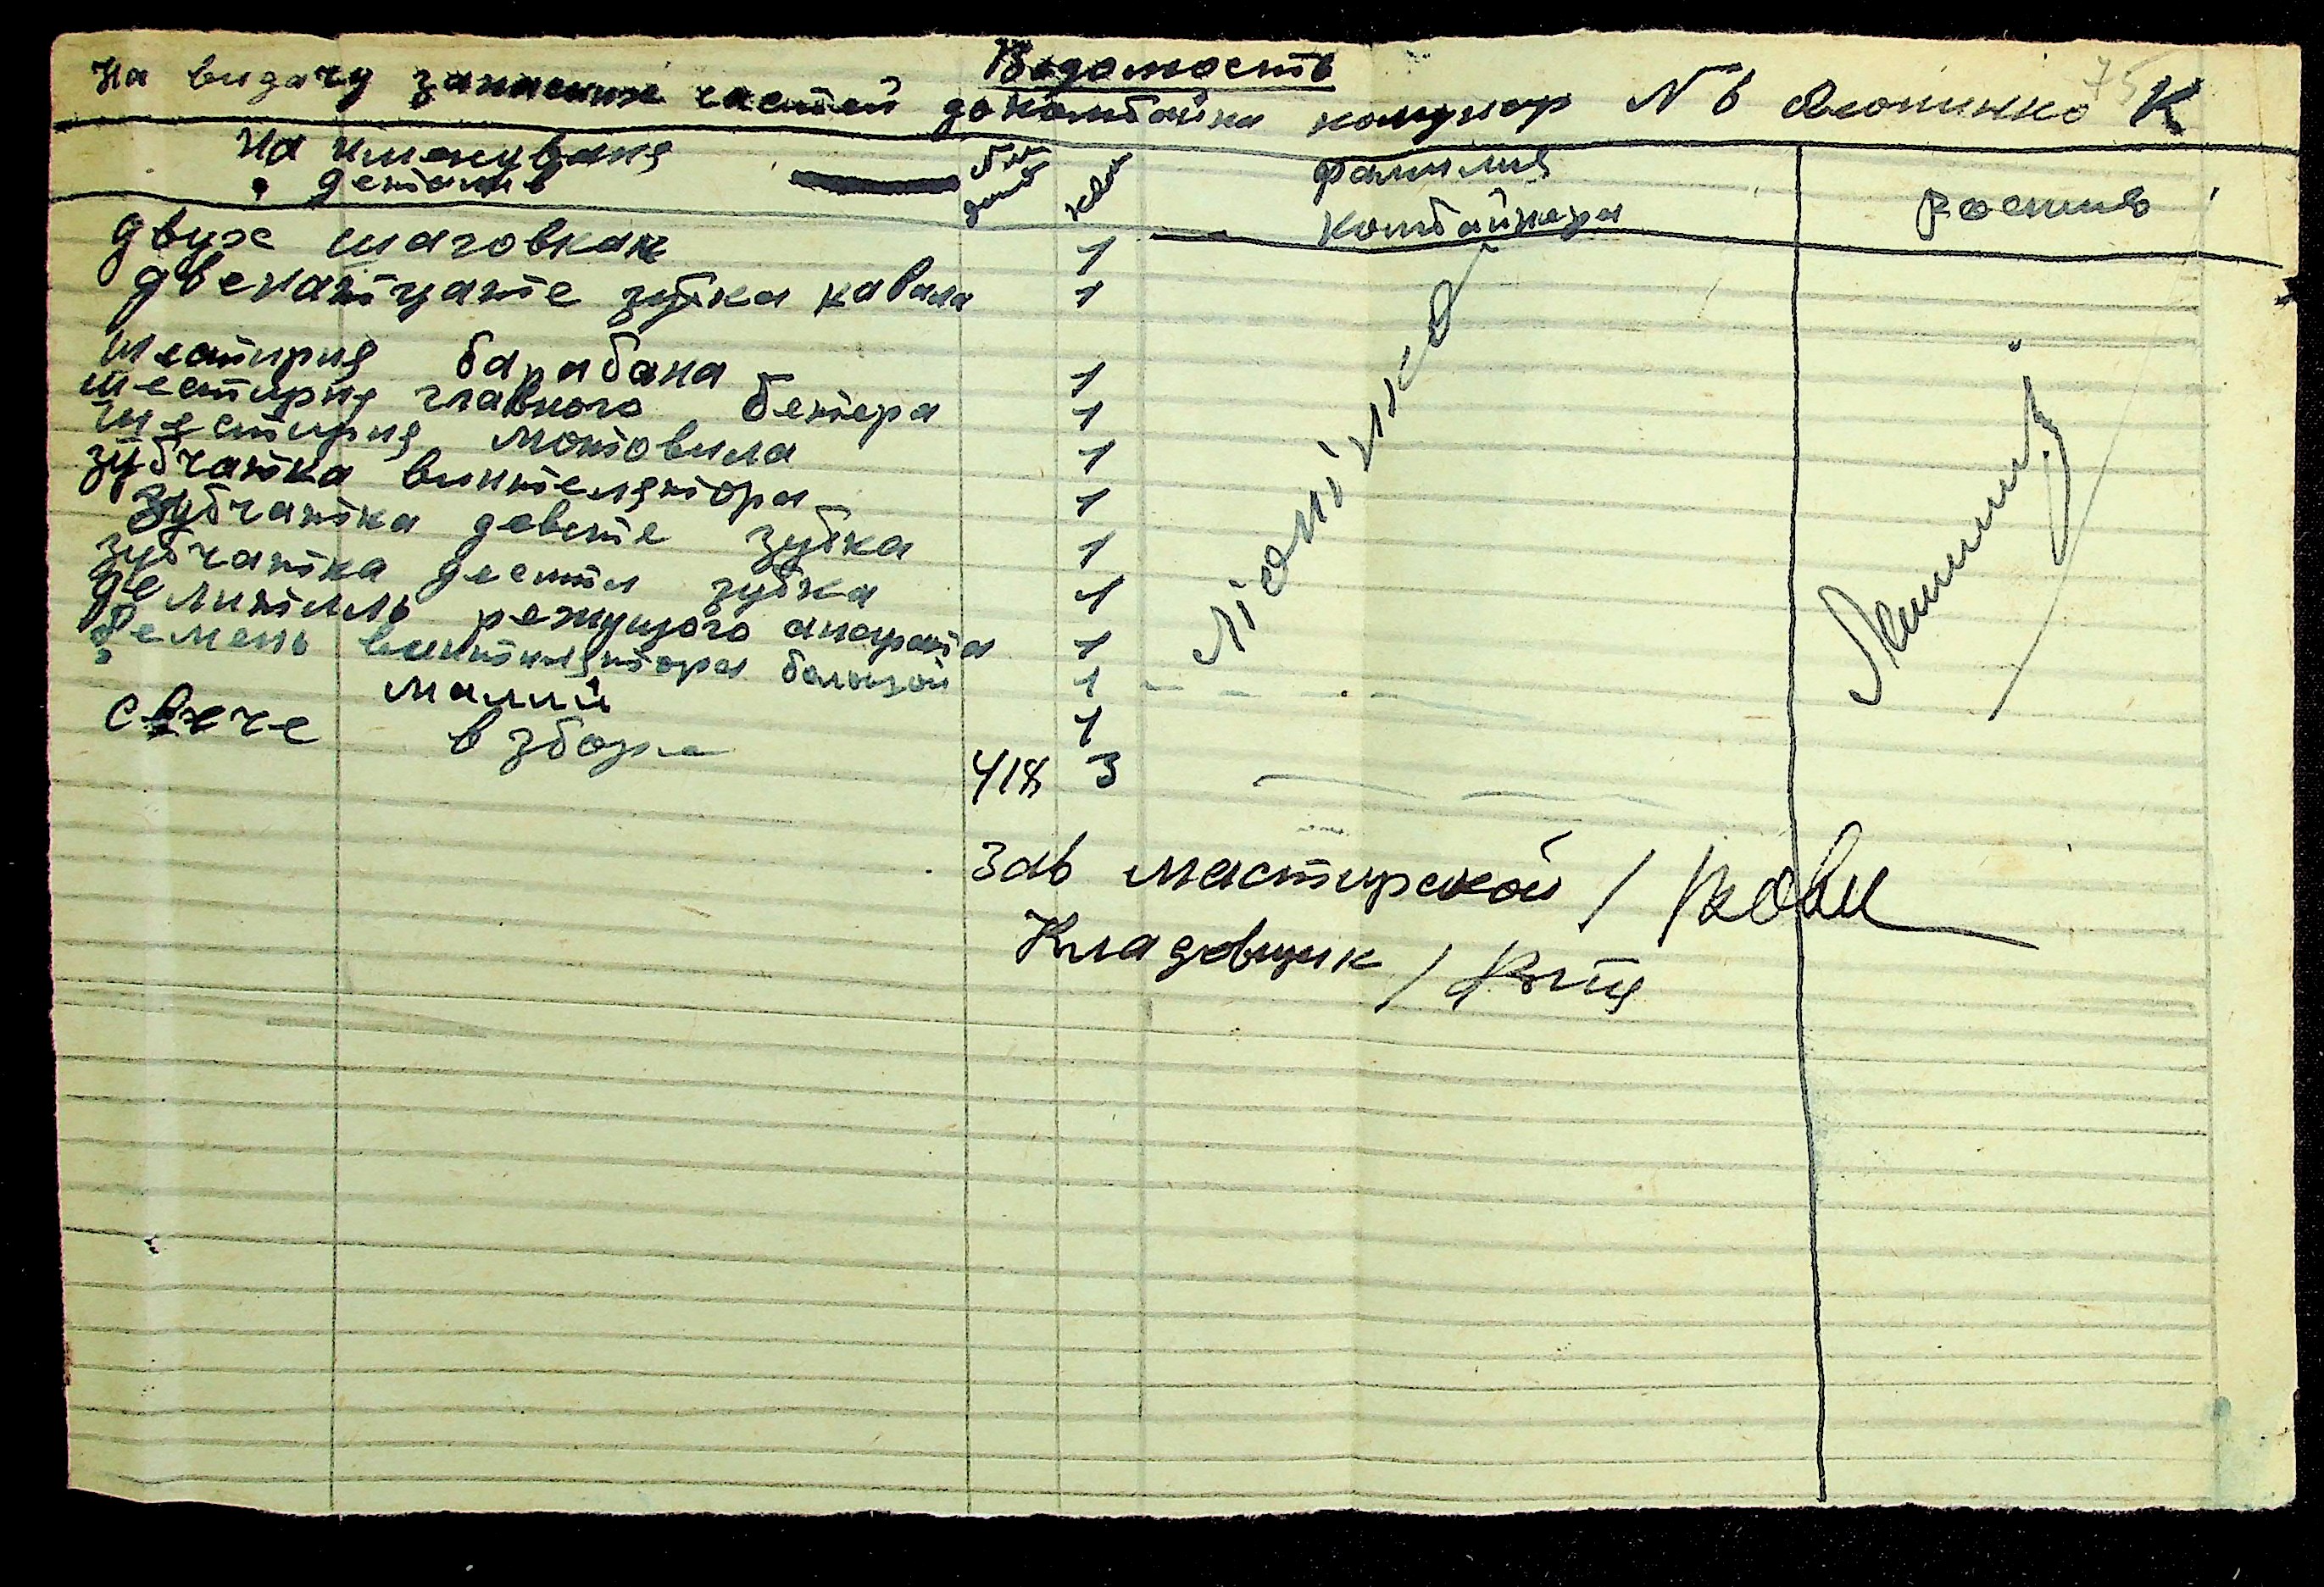 75
Ведомость
На видачу запасних частей до комбайна комунар N 6 К
На именуваня деталив
№ дет
кол
фамилия комбайнера
роспис
двух шаговках 1
двенатцате зубка кавала 1
шестирня барабана 1
шестирня главного бетера 1
шестирня мотовила 1
зубчатка винтелятора 1
зубчатка девете зубка 1
зубчатка десяти зубка 1
делитиль режущого апарата 1
Ремень винтилятора большой 1
малий 1
свече в зборе 418 3
Зав мастирской /
Кладовщик /